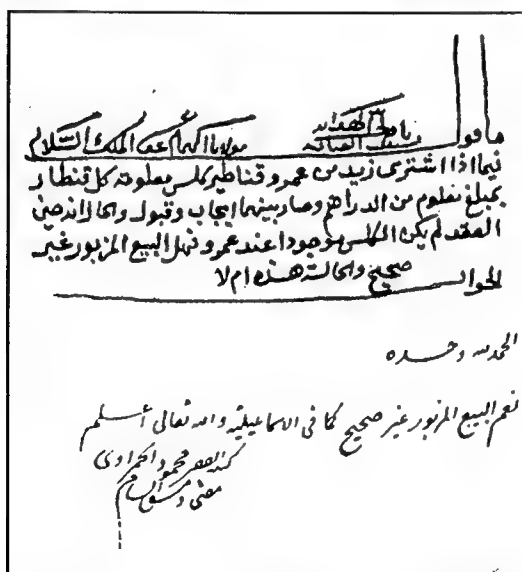 ما قو مولانا
فيما اذا اشترى زيد من عمرو قناطير كلس معلومة كل قنطار
بمبلغ معلوم من الدراهم وصار بينهما ايجاب وقبول والحال انه حين
العقد لم يكن الكلس موجودا عند عمرو فهل البيع المزبور غير
صحيح والحالة هذه ام لا
الجواب
الحمد لله وحده
نعم البيع المزبور غير صحيح كما في الاسماعيلية والله تعالى أعلم
كتبه الفقير محمود الحمزاوي
مفتي دمشق الشام